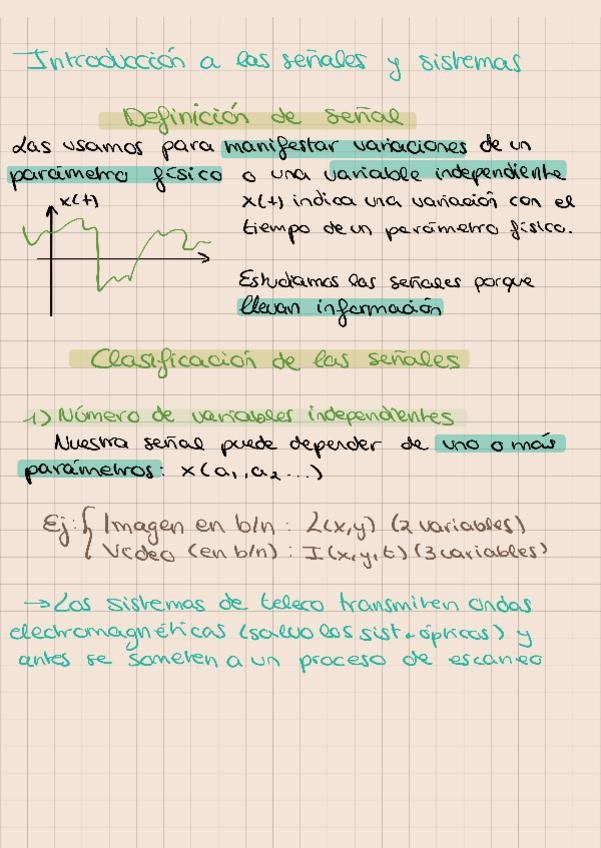 Introducción a las señales y sistemas
Definición de señal
Las usamos para manifestar variaciones de un
parámetro físico o una variable independiente
x(t)
x(t) indica una variación con el
tiempo de un parámetro físico.
Estudiamos las señales porque
llevan información
Clasificación de las señales
1) Número de variables independientes
Nuestra señal puede depender de uno o más
parámetros: x(a₁, a₂ ...)
Ej: { Imagen en b/n : L(x,y) (2 variables)
Vídeo (en b/n) : I(x,y,t) (3 variables)
→ Los sistemas de teleco transmiten ondas
electromagnéticas (salvo los sist. ópticos) y
antes se someten a un proceso de escaneo